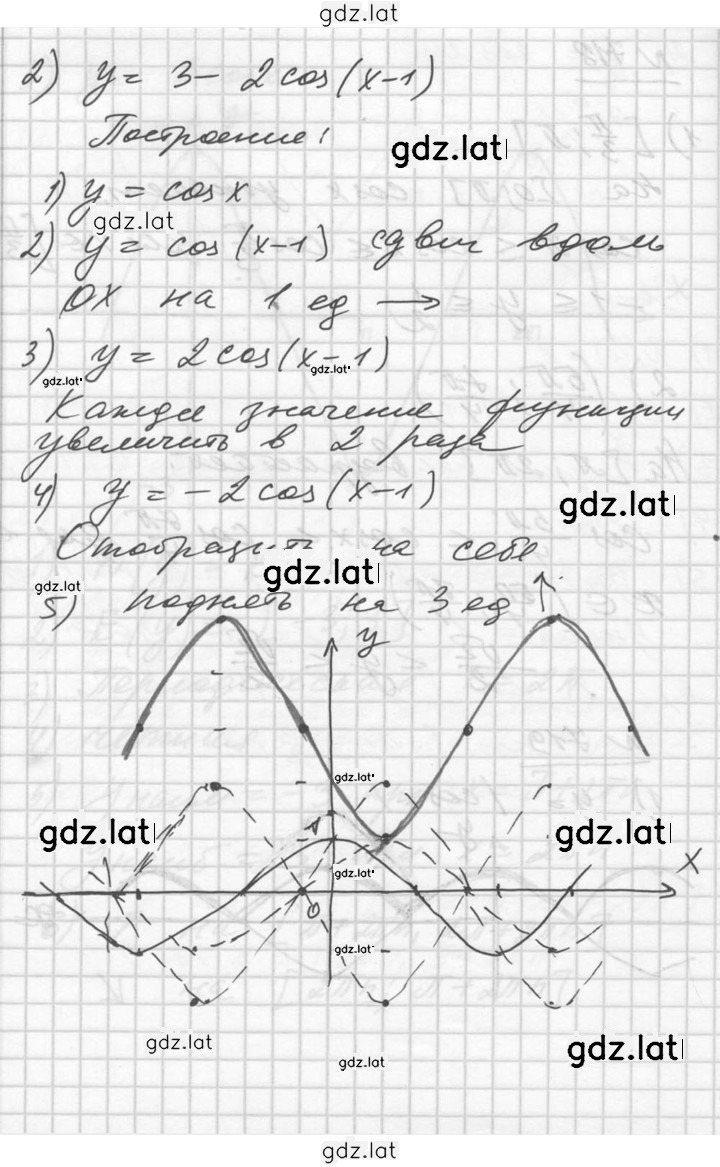 gdz.lat
2) y = 3 - 2 cos (x-1)
Построение:
gdz.lat
1) y = cos x
gdz.lat
2) y = cos (x-1) сдвиг вдоль
OX на 1 ед →
3) y = 2 cos (x-1)
gdz.lat
gdz.lat
Каждое значение функции
увеличить в 2 раза
4) y = -2 cos (x-1)
gdz.lat
Отобразить на себе
gdz.lat
gdz.lat
5) поднять на 3 ед ↑
y
gdz.lat
1
gdz.lat
gdz.lat
x
gdz.lat
0
gdz.lat
gdz.lat
gdz.lat
gdz.lat
gdz.lat